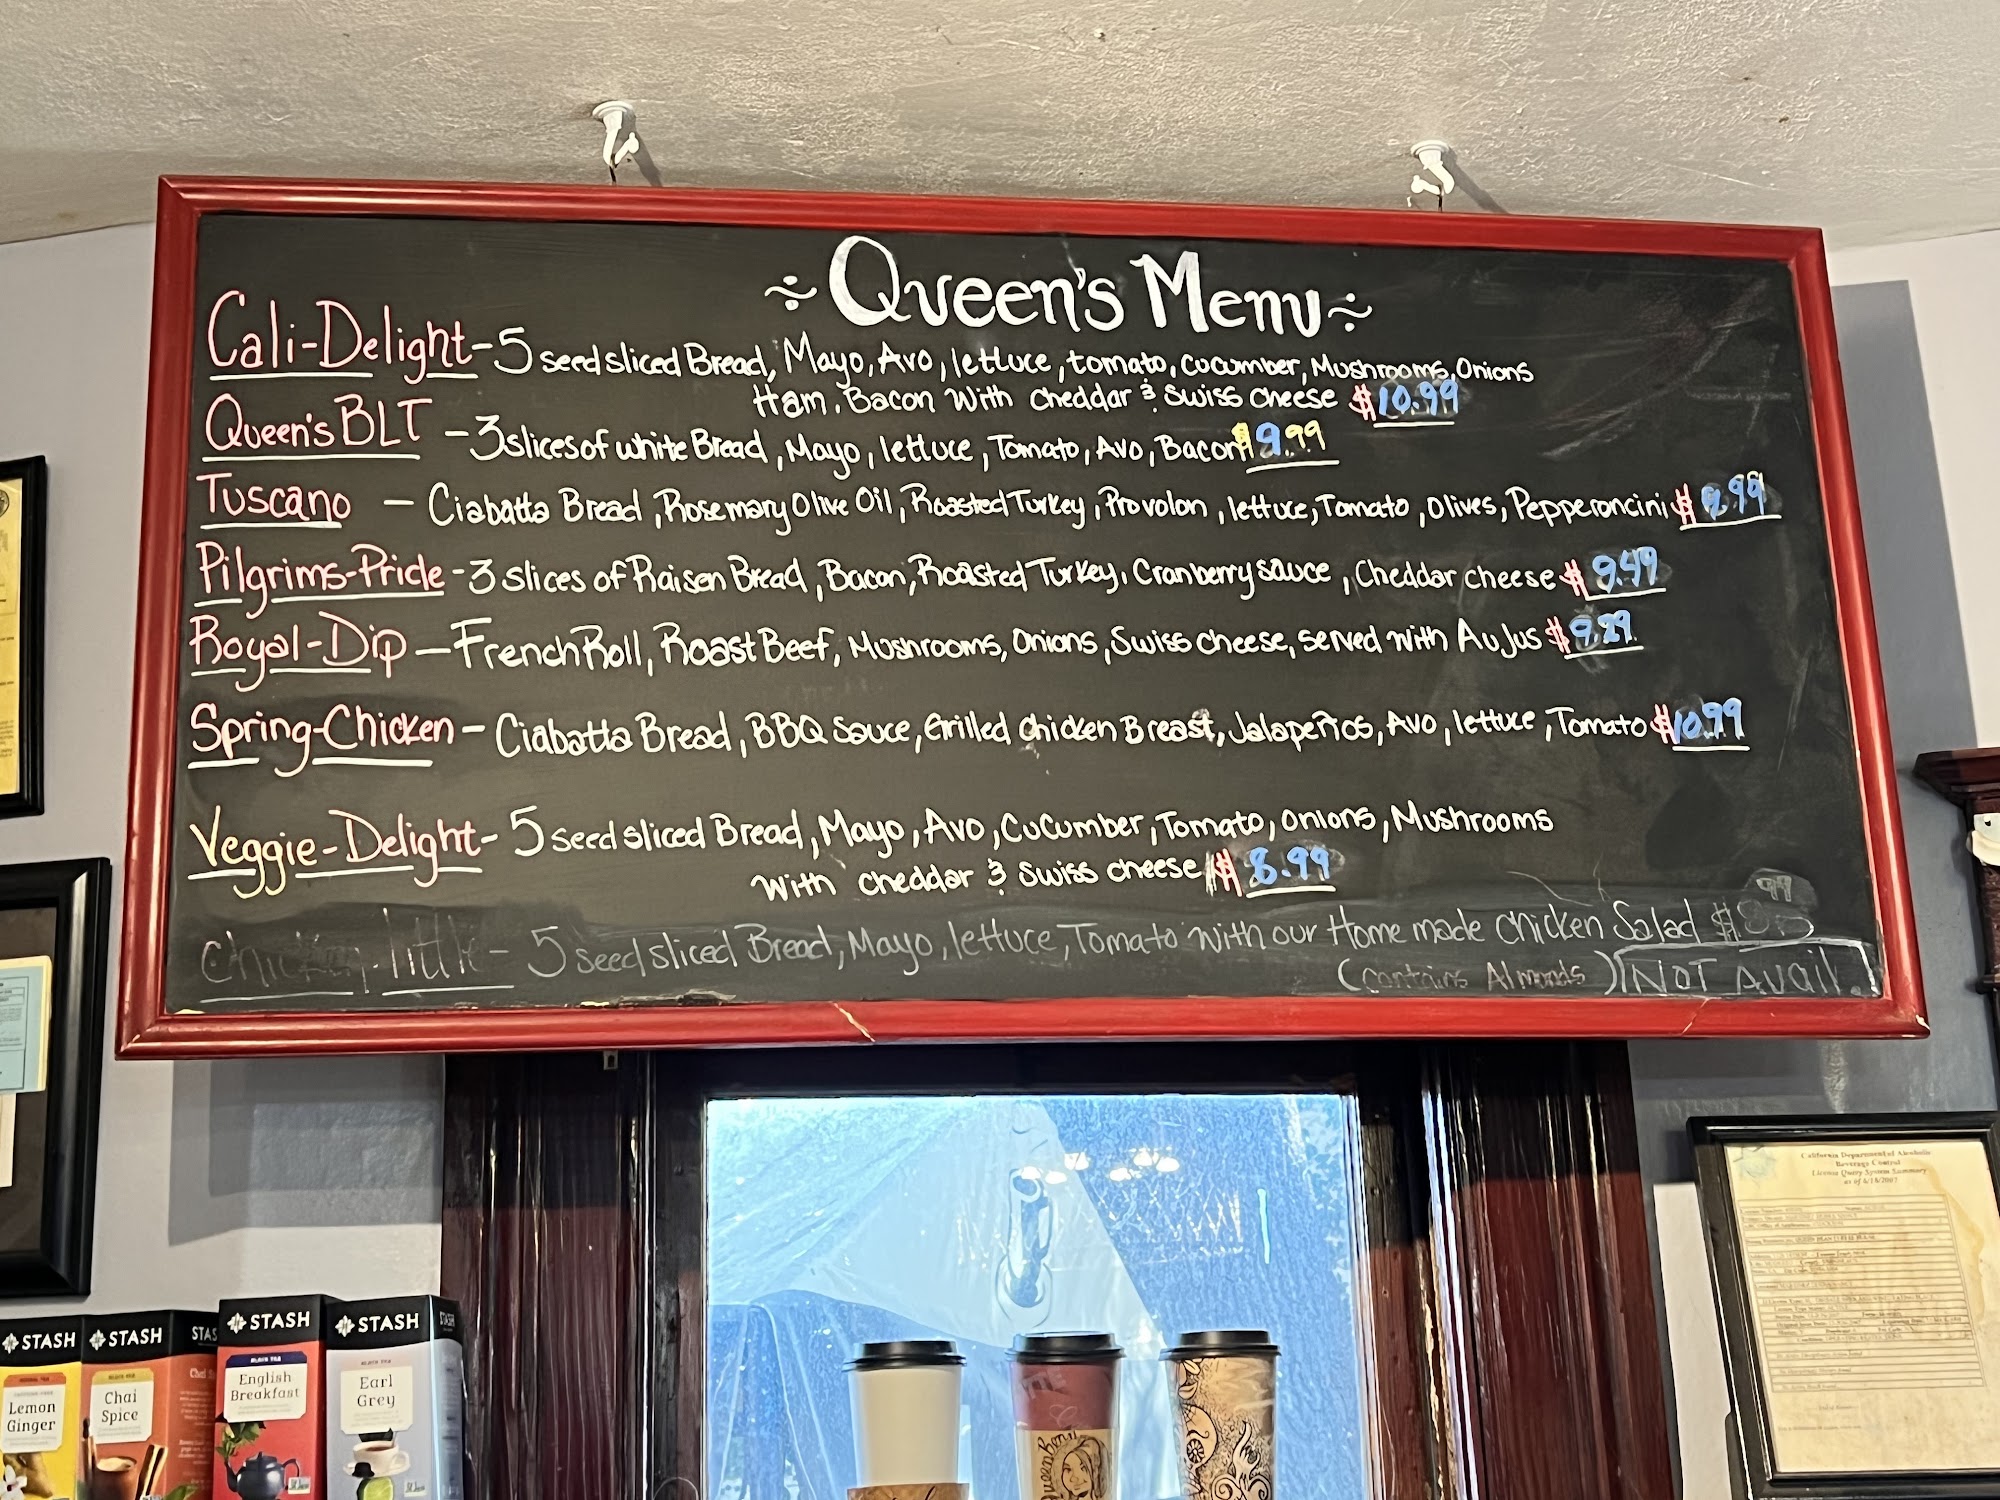 Queen's Menu
Cali-Delight - 5 seed sliced Bread, Mayo, Avo, lettuce, tomato, cucumber, Mushrooms, Onions
Ham, Bacon With cheddar & Swiss cheese $10.99
Queen's BLT - 3 slices of white Bread, Mayo, lettuce, Tomato, Avo, Bacon $9.99
Tuscano - Ciabatta Bread, Rosemary Olive Oil, Roasted Turkey, Provolon, lettuce, Tomato, Olives, Pepperoncini $9.99
Pilgrims-Pride - 3 slices of Raisen Bread, Bacon, Roasted Turkey, Cranberry sauce, Cheddar cheese $9.49
Royal-Dip - French Roll, Roast Beef, Mushrooms, Onions, Swiss cheese, served with AuJus $9.29
Spring-Chicken - Ciabatta Bread, BBQ Sauce, Grilled Chicken Breast, Jalapeños, Avo, lettuce, Tomato $10.99
Veggie-Delight - 5 seed sliced Bread, Mayo, Avo, Cucumber, Tomato, Onions, Mushrooms
With cheddar & Swiss cheese $8.99
5 seed sliced Bread, Mayo, lettuce, Tomato with our Home made chicken Salad
(contains Almonds) Not Avail.
California Department of Alcoholic
Beverage Control
License Query System Summary
STASH
Lemon
Ginger
STASH
Chai
Spice
STASH
BLACK TEA
English
Breakfast
STASH
BLACK TEA
Earl
Grey